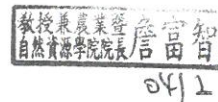 教授兼農業暨
自然資源學院院長
詹富智